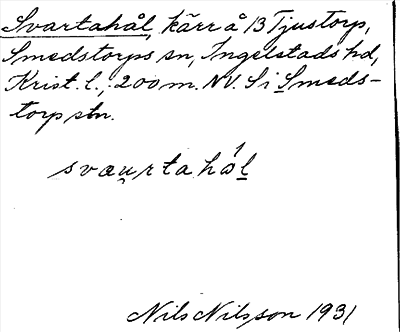 Svartahål, kärr å 13 Tjustorp,
Smedstorps sn, Ingelstads hd,
Krist. l., : 200 m. NV. S i Smeds-
torp stn.
svau̯rtahål
Nils Nilsson 1931